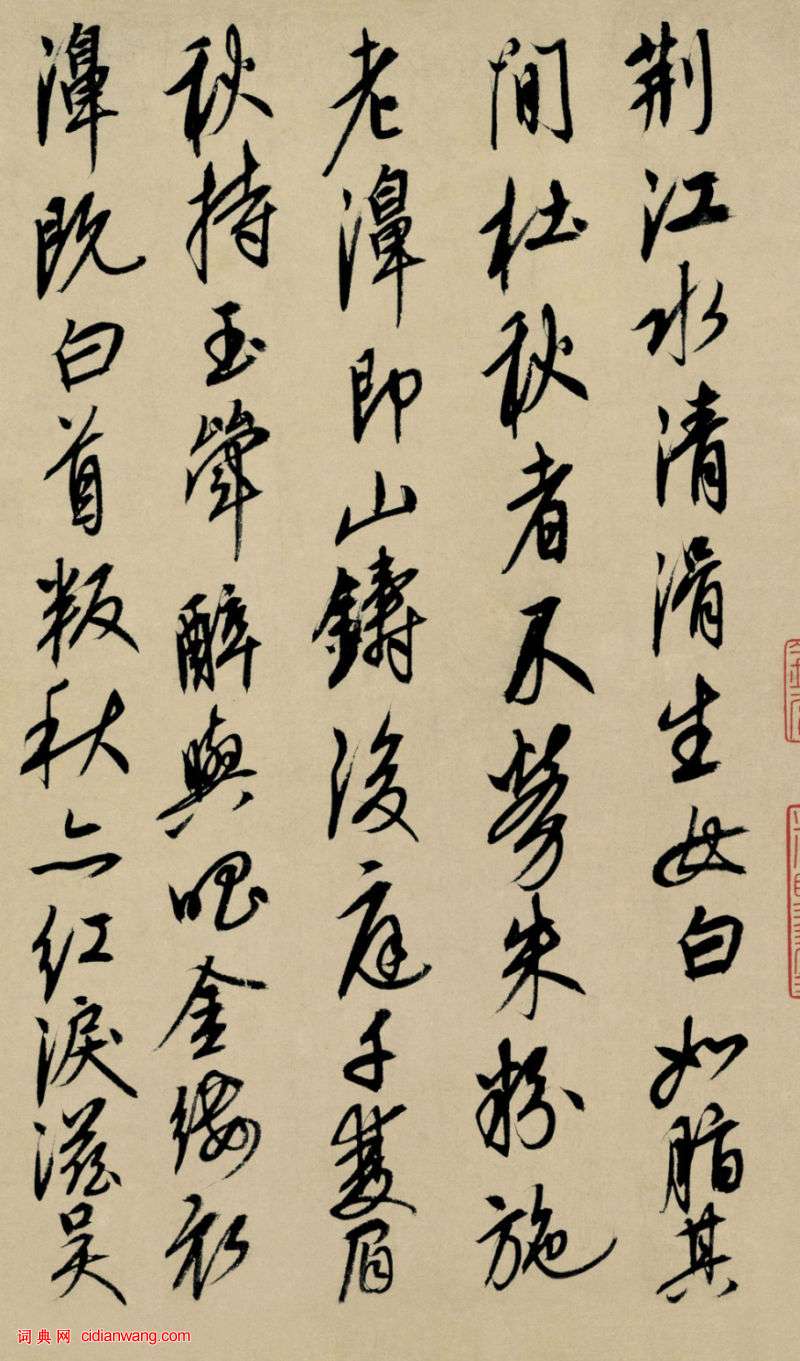 荆江水清滑生女白如脂其
間杜秋者不勞朱粉施
老濞即山鑄後庭千雙眉
秋持玉斝醉與唱金縷衣
濞既白首叛秋亦紅淚滋吳
词典网 cidianwang.com